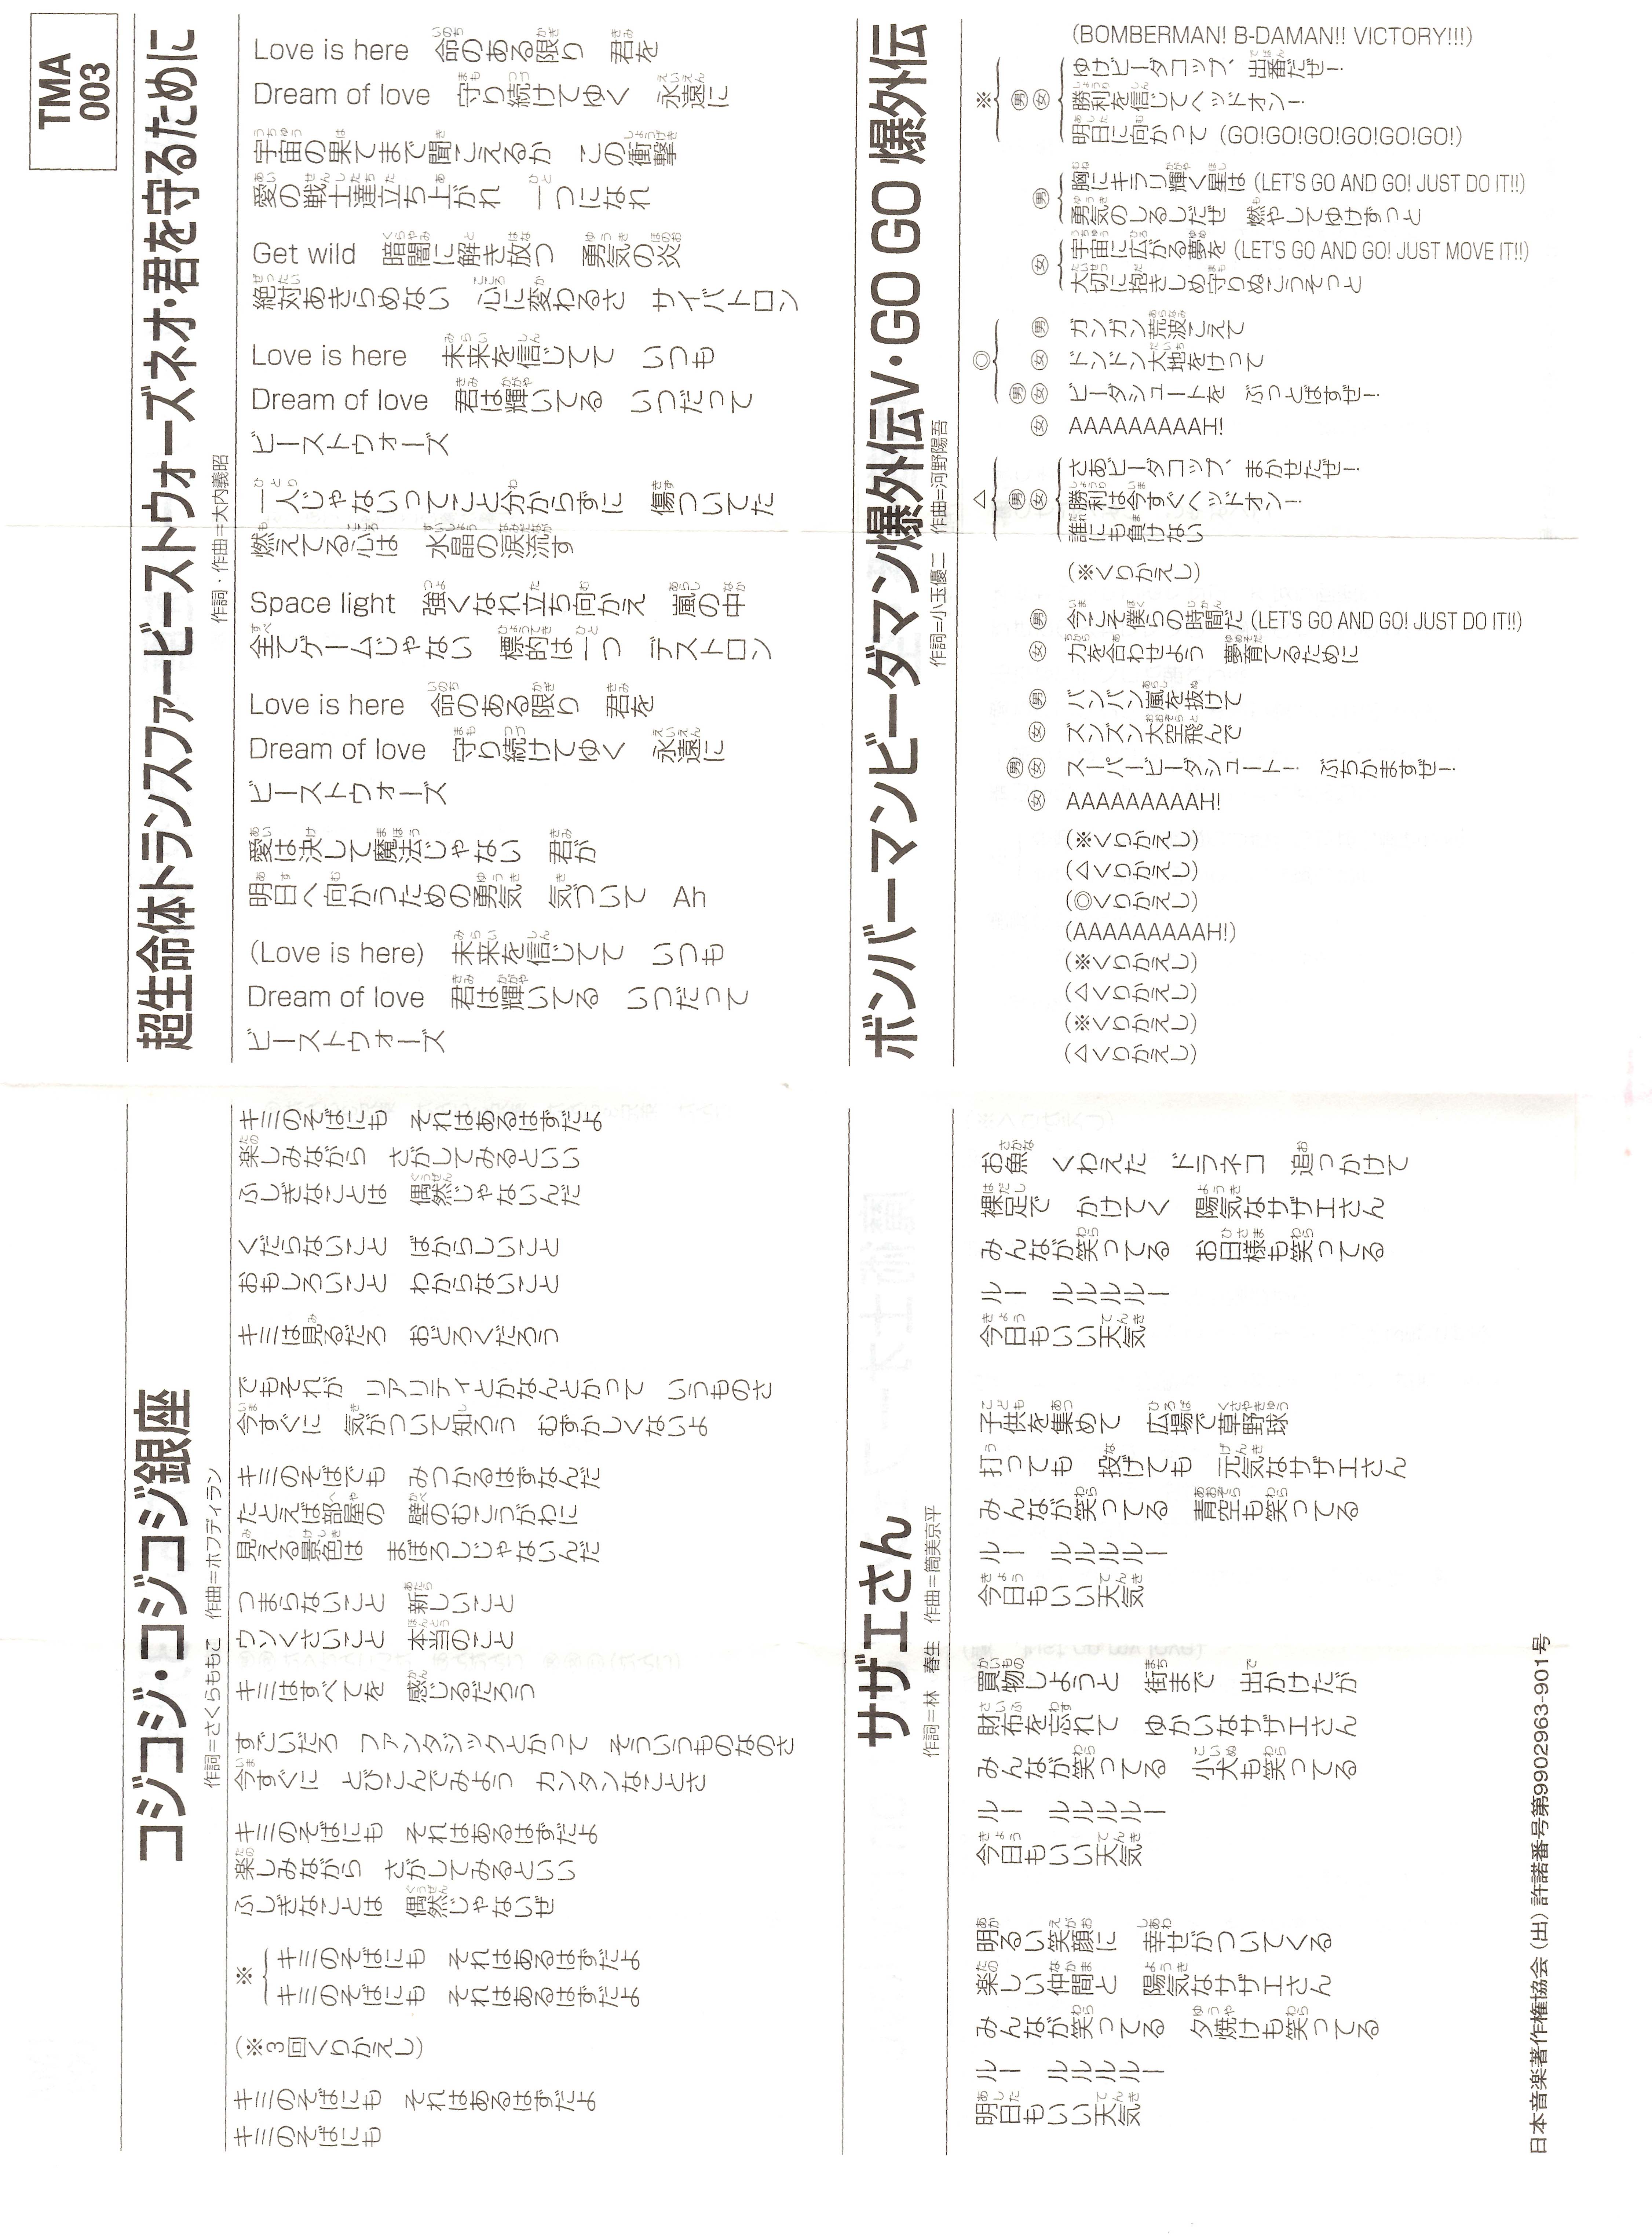 TMA
003
超生命体トランスファービーストウォーズネオ・君を守るために
作詞・作曲=大内義昭
Love is here　命のある限り　君を
Dream of love　守り続けてゆく　永遠に
宇宙の果てまで聞こえるか　この衝撃
愛の戦士達立ち上がれ　一つになれ
Get wild　暗闇に解き放つ　勇気の炎
絶対あきらめない　心に変わるさ　サイバトロン
Love is here　未来を信じてて　いつも
Dream of love　君は輝いてる　いつだって
ビーストウォーズ
一人じゃないってこと分からずに　傷ついてた
燃えてる心は　水晶の涙流す
Space light　強くなれ立ち向かえ　嵐の中
全てゲームじゃない　標的は一つ　デストロン
Love is here　命のある限り　君を
Dream of love　守り続けてゆく　永遠に
ビーストウォーズ
愛は決して魔法じゃない　君が
明日へ向かうための勇気　気づいて　Ah
(Love is here)　未来を信じてて　いつも
Dream of love　君は輝いてる　いつだって
ビーストウォーズ
ボンバーマンビーダマン爆外伝V・GO GO 爆外伝
作詞=小玉優二　作曲=河野陽吾
(BOMBERMAN! B-DAMAN!! VICTORY!!!)
※ 男 女 ゆけビーダコップ、出番だぜー!
勝利を信じてヘッドオン!
明日に向かって (GO!GO!GO!GO!GO!GO!)
男 胸にキラリ輝く星は (LET'S GO AND GO! JUST DO IT!!)
勇気のしるしだぜ　燃やしてゆけずっと
女 宇宙に広がる夢を (LET'S GO AND GO! JUST MOVE IT!!)
大切に抱きしめ守りぬこうそっと
◎ 男 ガンガン荒波こえて
女 ドンドン大地をけって
男 女 ビーダシュートを　ぶっとばすぜー!
女 AAAAAAAAAH!
△ 男 女 さあビーダコップ、まかせたぜー!
勝利は今すぐヘッドオン!
誰にも負けない
(※くりかえし)
男 今こそ僕らの時間だ (LET'S GO AND GO! JUST DO IT!!)
女 力を合わせよう　夢育てるために
男 バンバン嵐を抜けて
女 ズンズン大空飛んで
男 女 スーパービーダシュートー!　ぶちかますぜー!
女 AAAAAAAAAH!
(※くりかえし)
(△くりかえし)
(◎くりかえし)
(AAAAAAAAAH!)
(※くりかえし)
(△くりかえし)
(※くりかえし)
(△くりかえし)
コジコジ・コジコジ銀座
作詞=さくらももこ　作曲=ホフディラン
キミのそばにも　それはあるはずだよ
楽しみながら　さがしてみるといい
ふしぎなことは　偶然じゃないんだ
くだらないこと　ばからしいこと
おもしろいこと　わからないこと
キミは見るだろ　おどろくだろう
でもそれが　リアリティとかなんとかって　いうものさ
今すぐに　気がついて知ろう　むずかしくないよ
キミのそばでも　みつかるはずなんだ
たとえば部屋の　壁のむこうがわに
見える景色は　まぼろしじゃないんだ
つまらないこと　新しいこと
ウソくさいこと　本当のこと
キミはすべてを　感じるだろう
すごいだろ　ファンタジックとかって　そういうものなのさ
今すぐに　とびこんでみよう　カンタンなことさ
キミのそばにも　それはあるはずだよ
楽しみながら　さがしてみるといい
ふしぎなことは　偶然じゃないぜ
※ キミのそばにも　それはあるはずだよ
キミのそばにも　それはあるはずだよ
(※3回くりかえし)
キミのそばにも　それはあるはずだよ
キミのそばにも
サザエさん
作詞=林　春生　作曲=筒美京平
お魚　くわえた　ドラネコ　追っかけて
裸足で　かけてく　陽気なサザエさん
みんなが笑ってる　お日様も笑ってる
ルー　ルルルルー
今日もいい天気
子供を集めて　広場で草野球
打っても　投げても　元気なサザエさん
みんなが笑ってる　青空も笑ってる
ルー　ルルルルー
今日もいい天気
買物しようと　街まで　出かけたが
財布を忘れて　ゆかいなサザエさん
みんなが笑ってる　小犬も笑ってる
ルー　ルルルルー
今日もいい天気
明るい笑顔に　幸せがついてくる
楽しい仲間と　陽気なサザエさん
みんなが笑ってる　夕焼けも笑ってる
ルー　ルルルルー
明日もいい天気
日本音楽著作権協会（出）許諾番号第9902963-901号